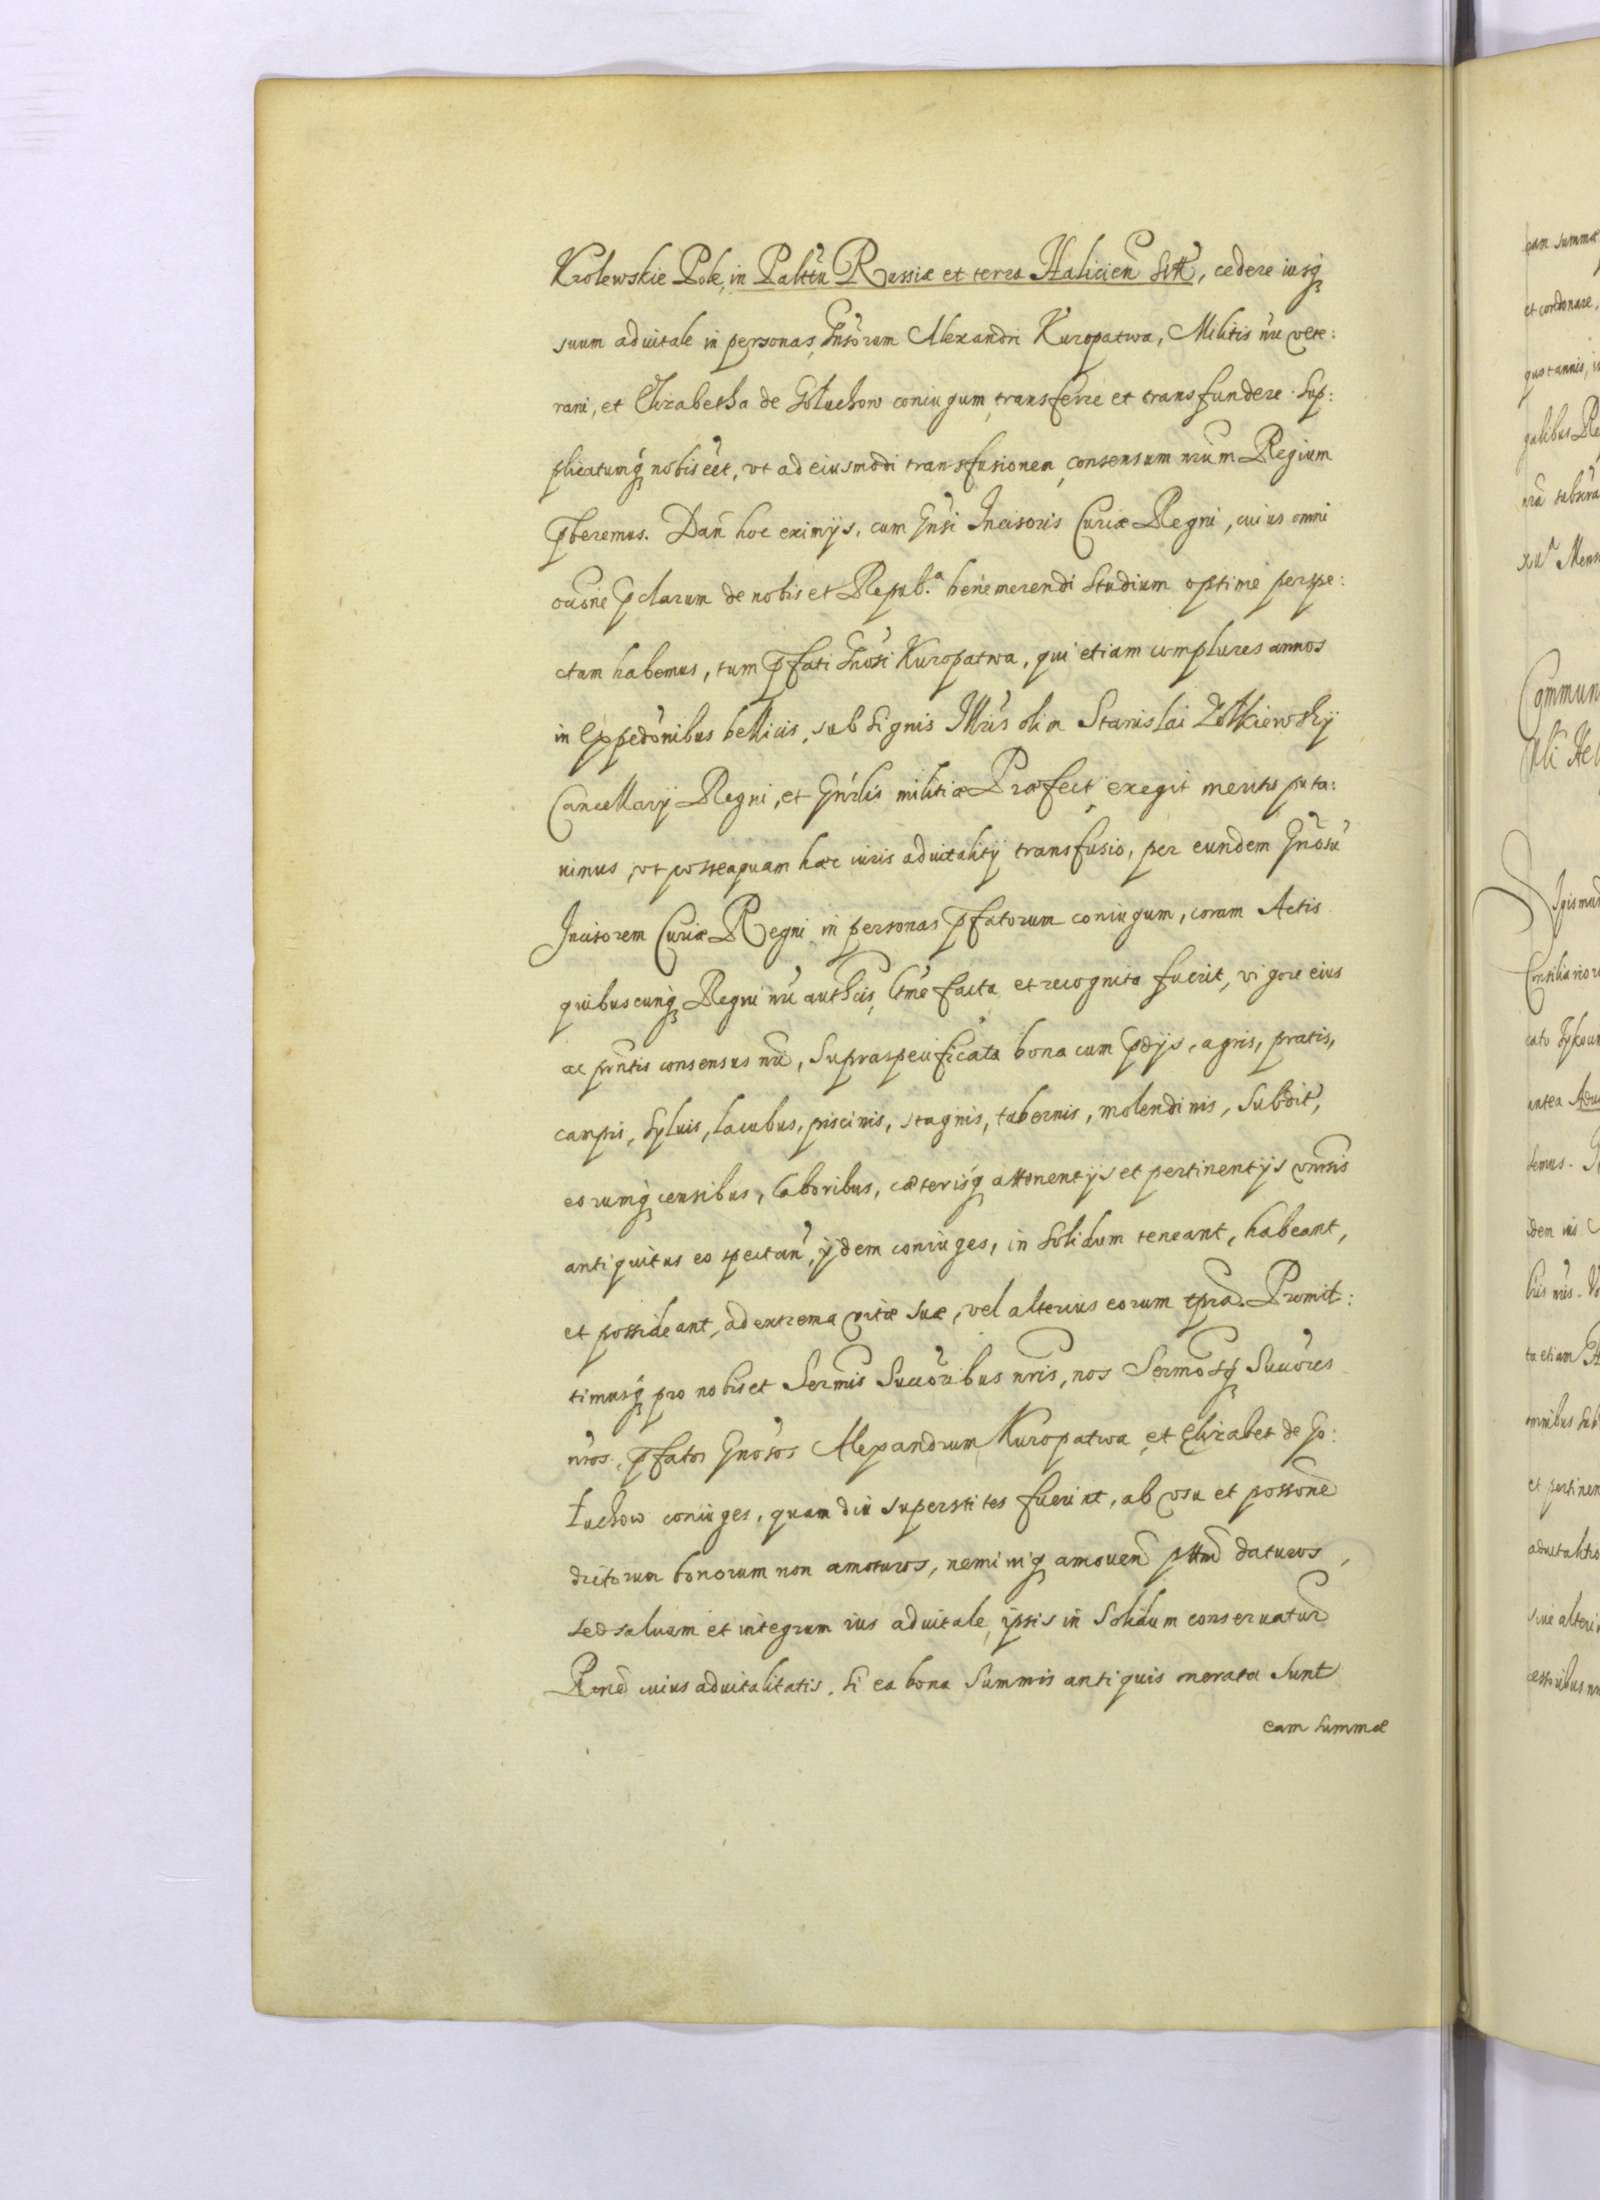 Krolewskie Pole, in Palttu Russiæ et terra Halicien̄ Sitt, cedere iusq̃
suum aduitale in personas Gn̄sorum Alexandri Kuropatwa, Militis nr̄i vete:
rani, et Elizabetha de Gołuchow coniugum transferre et transfundere. Sup:
plicatumq̃ nobis eēt, vt ad eiusmodi transfusionem consensum nr̄um Regium
p̄beremus. Dan̄ hoc eximijs, cum Gn̄si Incisoris Curiæ Regni, cuius omni
oc̄c̄one p̄clarum de nobis et Repub.ca benemerendi studium optime perspe:
ctum habemus, tum p̄fati Gn̄osi Kuropatwa, qui etiam complures annos
in expedōnibus bellicis, sub signis Illr̄is olim Stanislai Zołkiewsky
Cancellarij Regni, et Gn̄rlis militiæ Præfecti exegit meritis puta:
uimus, vt posteaquam hæc iuris aduitalitij transfusio, per eundem Gn̄osū
Incisorem Curiæ Regni in personas p̄fatorum coniugum, coram Actis
quibuscunq̃ Regni nr̄i auth̄cis, ltm̄e facta et recognita fuerit, vigore eius
ac pn̄tis consensus nr̄i, supraspecificata bona cum p̄dijs, agris, pratis,
campis, syluis, lacubus, piscinis, stagnis, tabernis, molendinis, subdit,
eorumq̃ censibus, laboribus, cæterisq̃ attinentijs et pertinentijs vn̄rsis
antiquitus eo spectan̄, ijdem coniuges, in solidum teneant, habeant,
et possideant, ad extrema vitæ suæ, vel alterius eorum tp̄ra. Promit:
timusq̃ pro nobis et Serm̄is Succōribus nr̄is, nos Serm̄osq̃ Succōres
nr̄os, p̄fatos Gn̄osos Alexandrum Kuropatwa et Elizabet de Go:
łuchow coniuges, quam diu superstites fuerint, ab vsu et possōne
dictorum bonorum non amoturos, neminiq̃ amouen̄ ptt̄em daturos,
sed saluum et integrum ius aduitale, ipsis in solidum conseruatur̄
R̄one cuius aduitalitatis, si ea bona summis antiquis onerata sunt
eam summæ